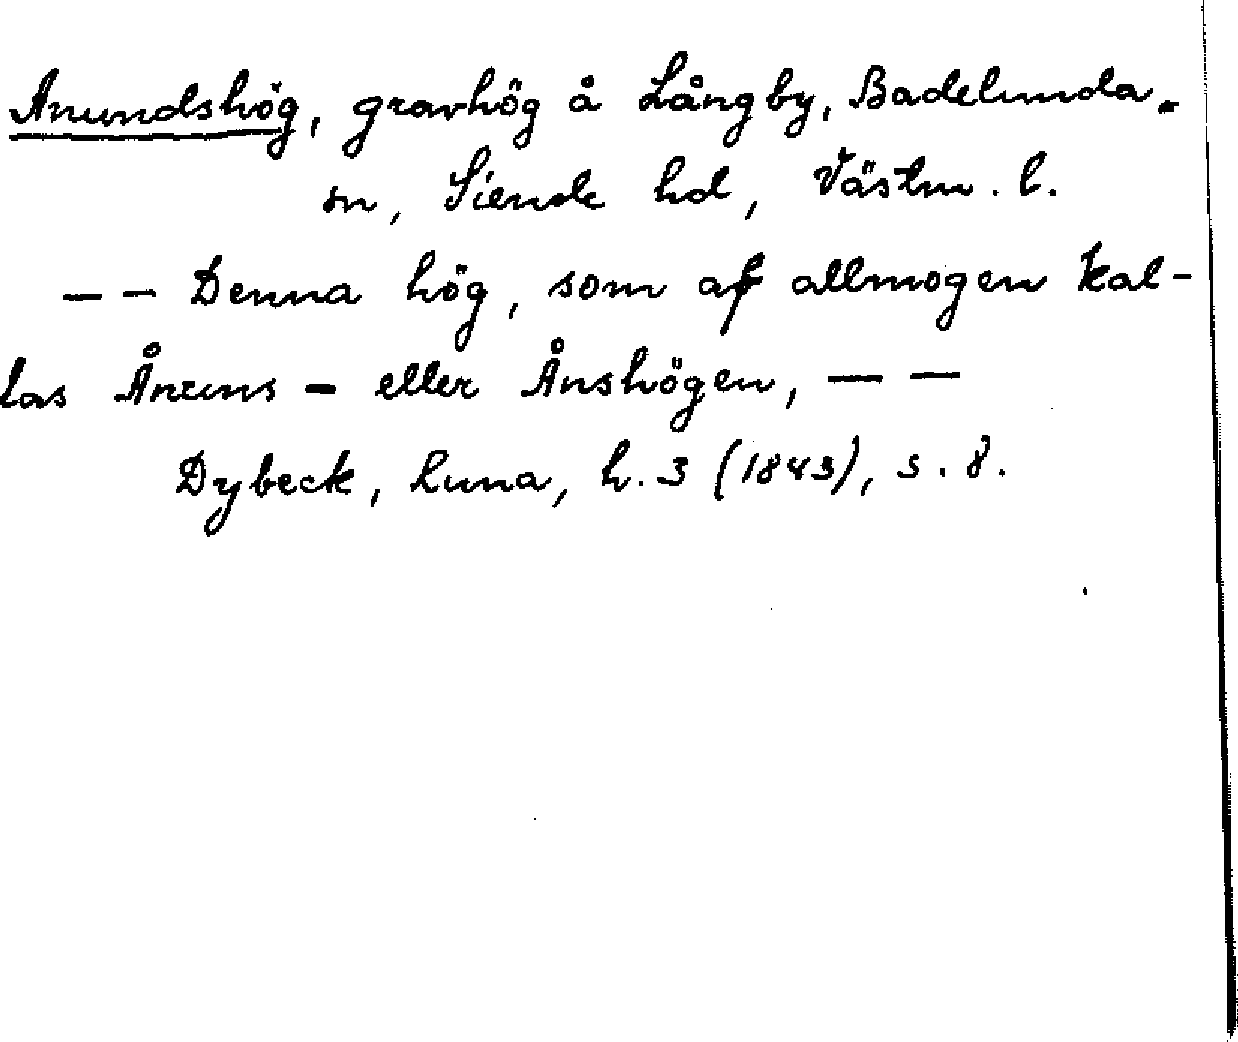 Anundshög, gravhög å Långby, Badelunda
sn, Siende hd, Västm. l.
— — Denna hög, som af allmogen kal-
las Ånuns- eller Ånshögen, — —
Dybeck, Runa, h. 3 (1843), s. 8.